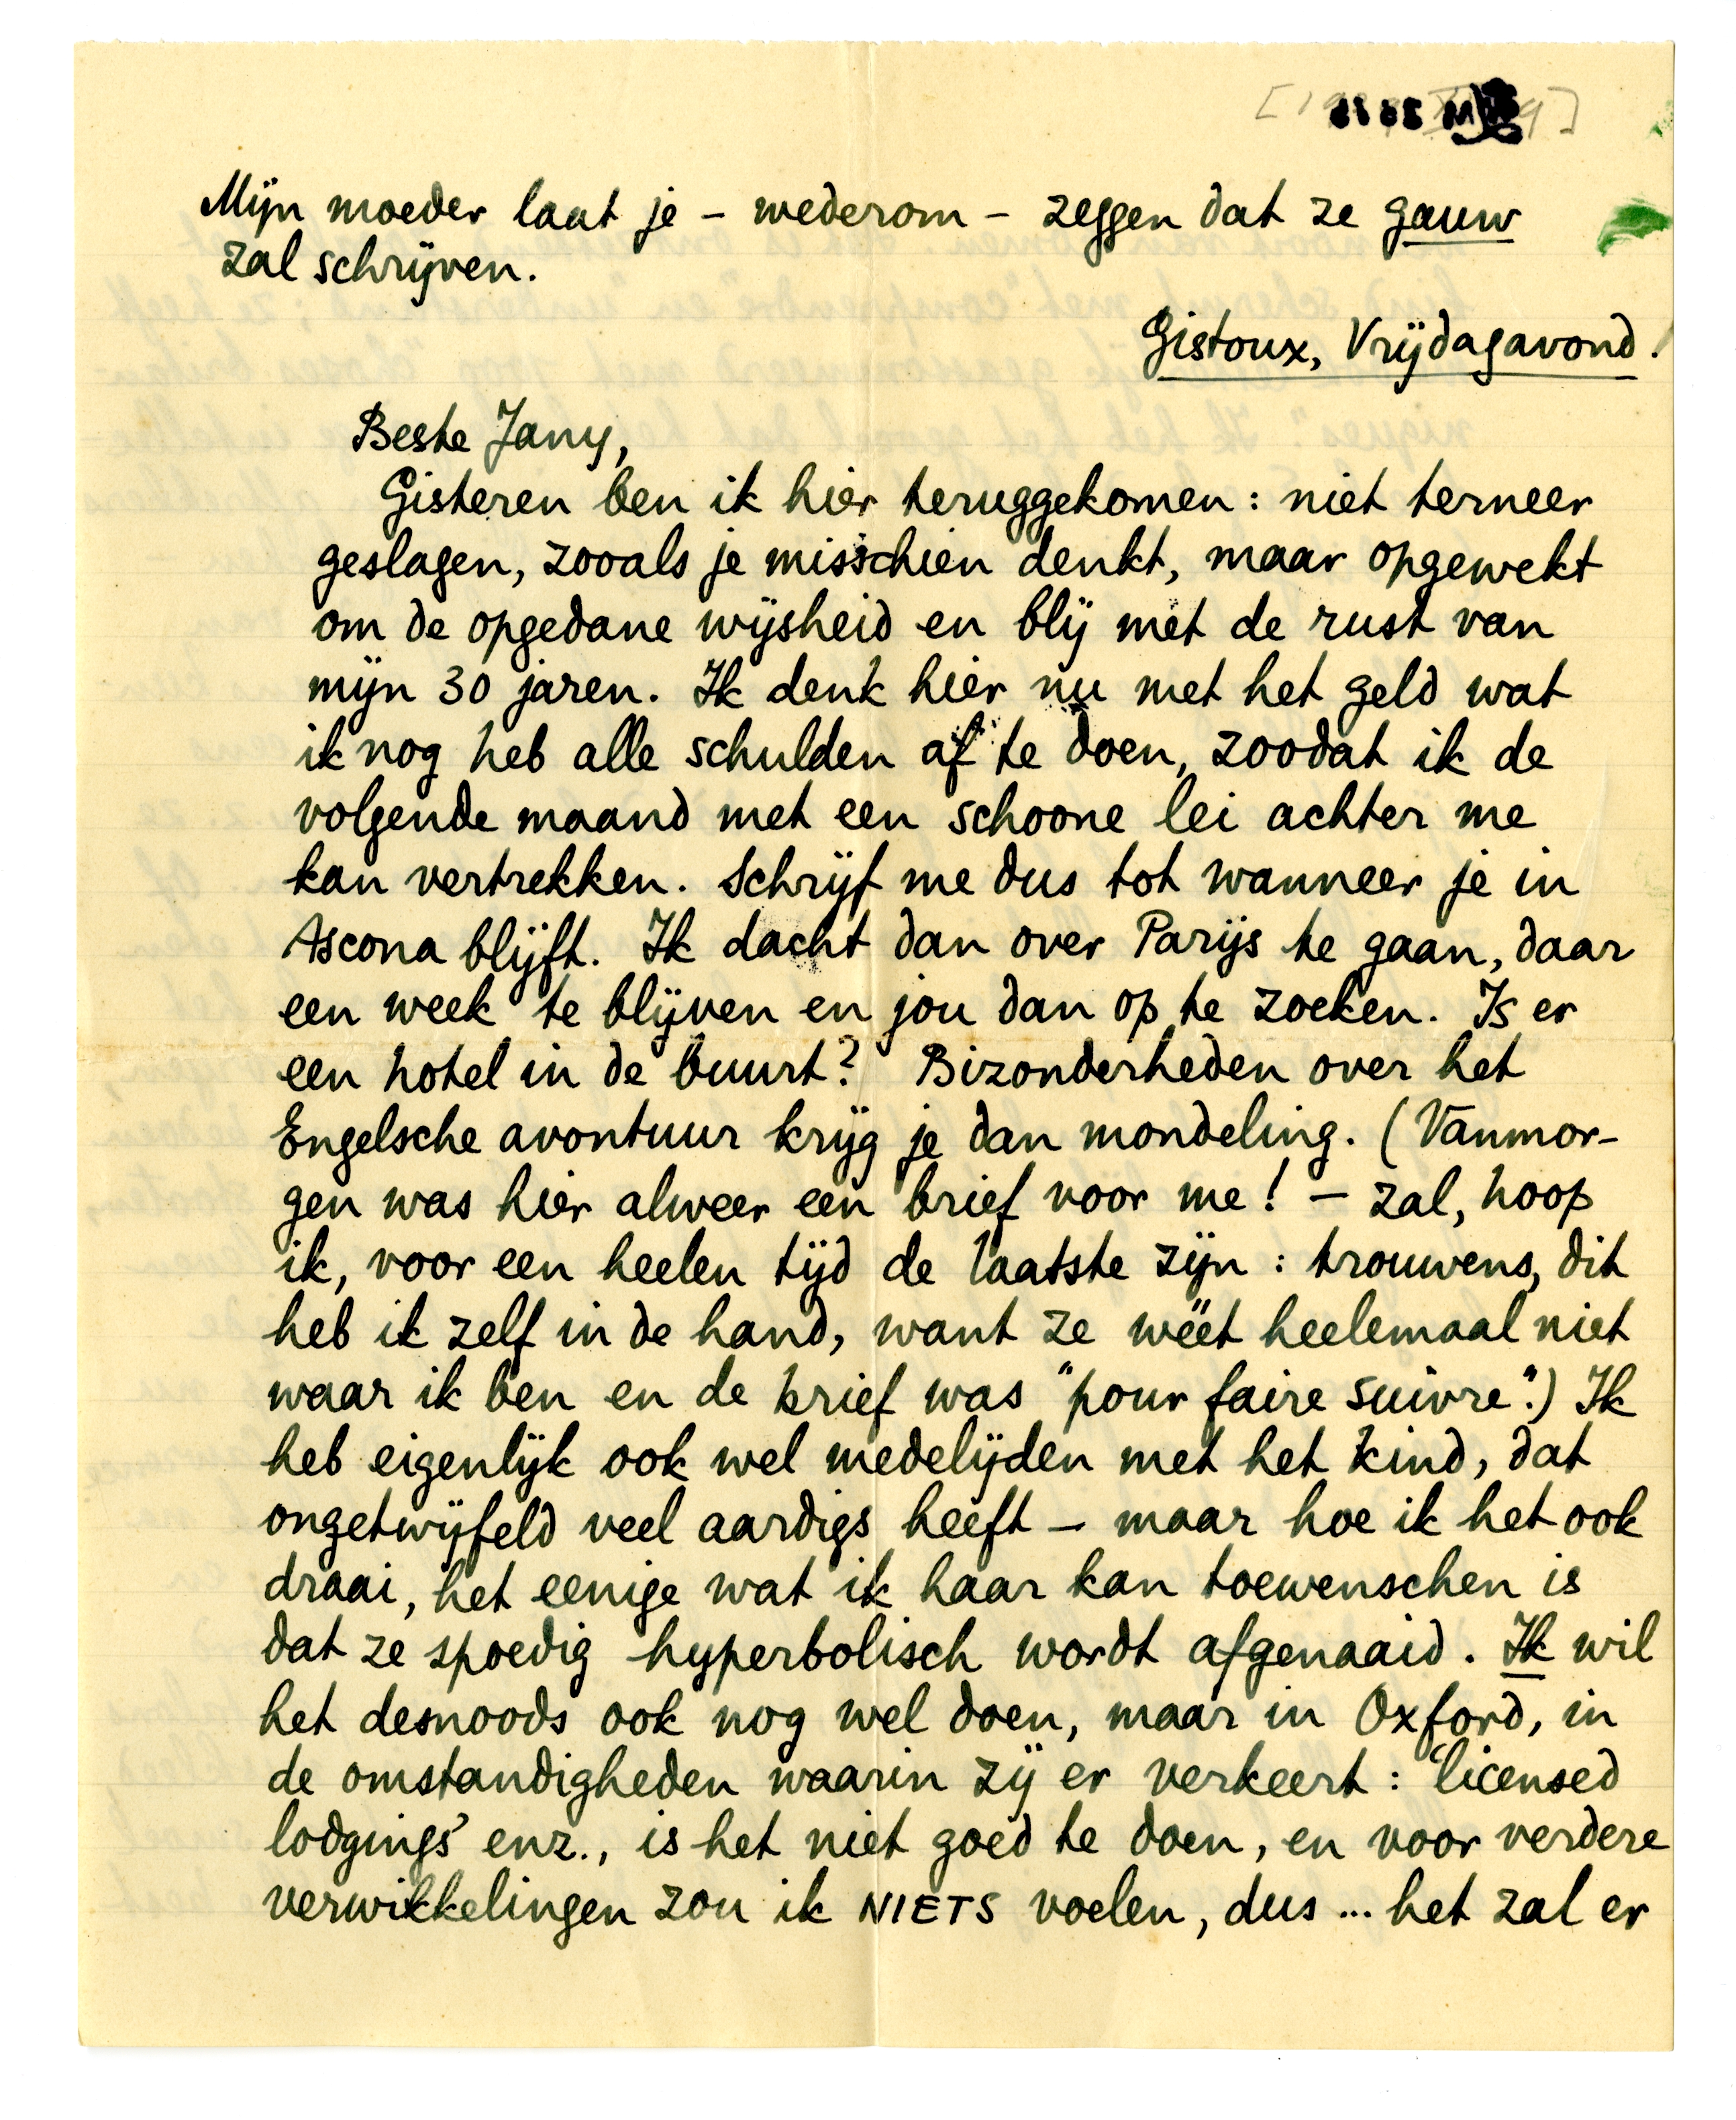 Mijn moeder laat je – wederom – zeggen dat ze gauw
zal schrijven.
Gistoux, Vrijdagavond.
Beste Jany,
Gisteren ben ik hier teruggekomen: niet terneer
geslagen, zooals je misschien denkt, maar opgewekt
om de opgedane wijsheid en blij met de rust van
mijn 30 jaren. Ik denk hier nu met het geld wat
ik nog heb alle schulden af te doen, zoodat ik de
volgende maand met een schoone lei achter me
kan vertrekken. Schrijf me dus tot wanneer je in
Ascona blijft. Ik dacht dan over Parijs te gaan, daar
een week te blijven en jou dan op te zoeken. Is er
een hotel in de buurt? Bizonderheden over het
Engelsche avontuur krijg je dan mondeling. (Vanmor-
gen was hier alweer een brief voor me! – zal, hoop
ik, voor een heelen tijd de laatste zijn: trouwens, dit
heb ik zelf in de hand, want ze wéét heelemaal niet
waar ik ben en de brief was "pour faire suivre".) Ik
heb eigenlijk ook wel medelijden met het kind, dat
ongetwijfeld veel aardigs heeft – maar hoe ik het ook
draai, het eenige wat ik haar kan toewenschen is
dat ze spoedig hyperbolisch wordt afgenaaid. Ik wil
het desnoods ook nog wel doen, maar in Oxford, in
de omstandigheden waarin zij er verkeert: 'licensed
lodgings' enz., is het niet goed te doen, en voor verdere
verwikkelingen zou ik NIETS voelen, dus ... het zal er